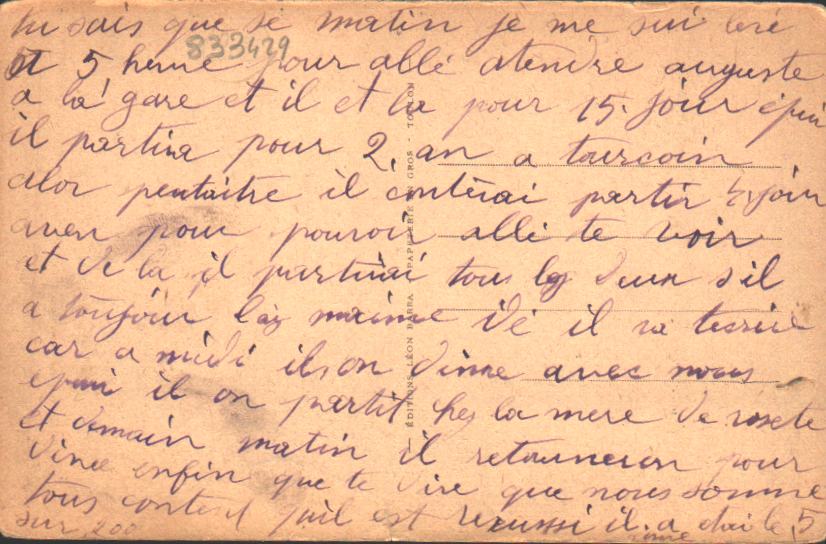 tu sais que se matin je me sui levé
833429
at 5 heure pour allé atendre auguste
a la gare et il et la pour 15 jour épui
il partira pour 2 an a tourcoin
alor peutaitre il partir 4 jour
aven pour pouvoir allé te voir
et de la il partirai tous les deux s'il
a toujour la maime idé il va
car a midi ils on diner avec nous
epui il on partit ches la mere de rosete
et demain matin il retourneron pour
diner enfin que te dire que nous somme
tous contest quil est reuussi il a été le 5
sur 200
ÉDITIONS LÉON BARRA PAPETERIE EN GROS - TOULON